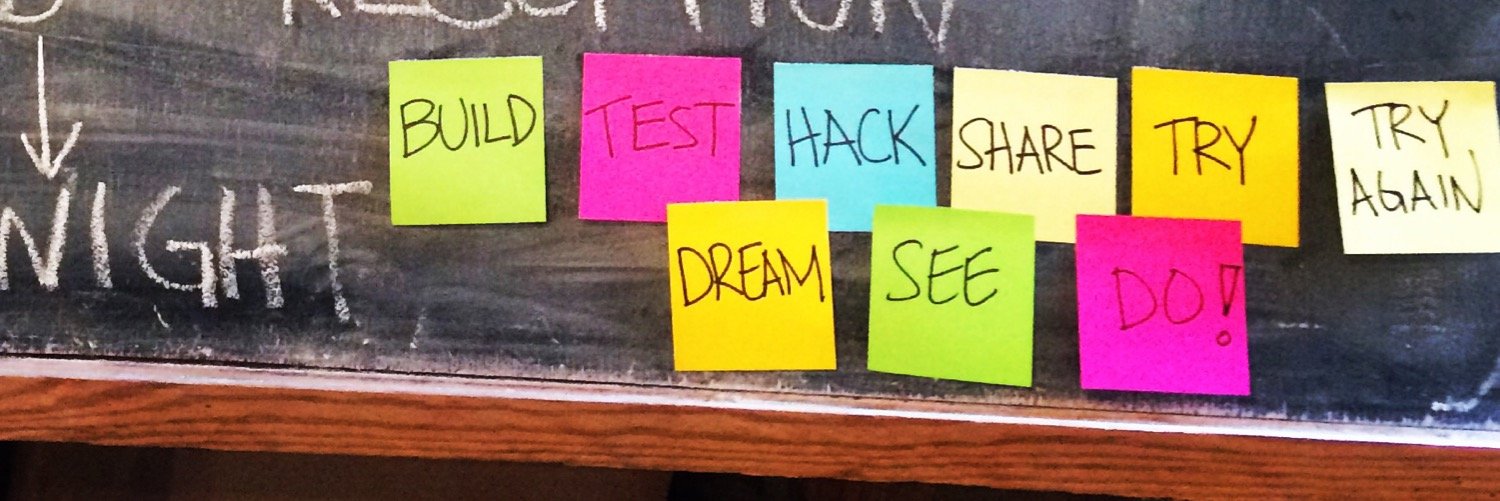 RECEPTION
BUILD
TEST
HACK
SHARE
TRY
TRY
AGAIN
NIGHT
DREAM
SEE
DO!